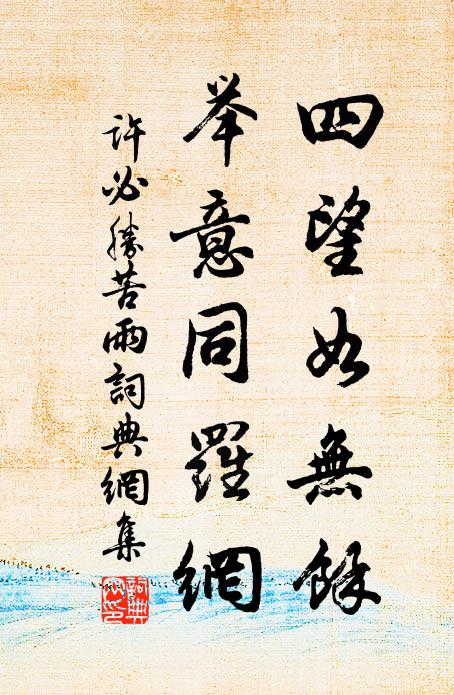 四望如無餘
举意同羅網
許必勝苦雨詞典網集